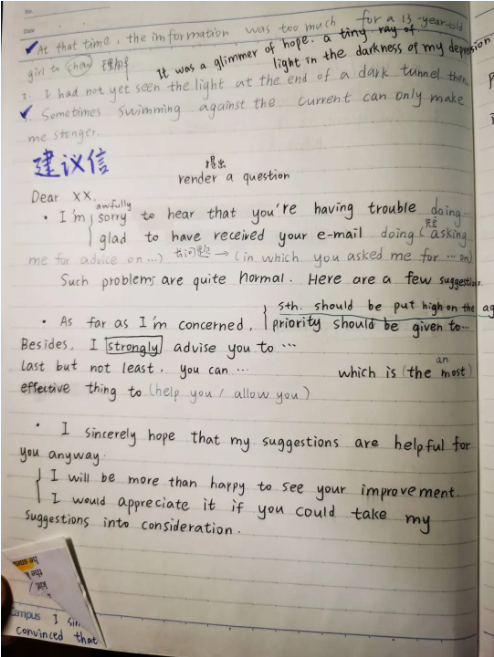 No.
Date
✓ At that time, the imformation was too much for a 13-year-old
girl to (hao) 理解
It was a glimmer of hope. a tiny ray of
light in the darkness of my depression
I had not yet seen the light at the end of a dark tunnel then.
✓ Sometimes swimming against the current can only make
me stonger.
建议信
提出
render a question
Dear XX.
awfully
· I'm sorry to hear that you're having trouble doing
glad to have received your e-mail doing (asking
me for advice on ...) → (in which you asked me for ... on)
Such problems are quite normal. Here are a few suggestions
sth. should be put high on the ag
· As far as I'm concerned, priority should be given to...
Besides, I strongly advise you to ...
last but not least. you can ... which is (the most)
an
effective thing to (help you / allow you)
· I sincerely hope that my suggestions are helpful for
you anyway.
I will be more than happy to see your improvement.
I would appreciate it if you could take my
suggestions into consideration.
campus I sin
convinced that